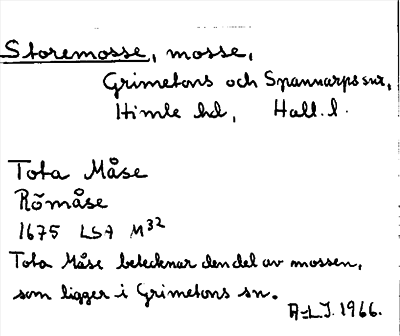 Storemosse, mosse,
Grimetons och Spannarps snr,
Himle hd, Hall. l.
Tota Måse
Römåse
1675 LSA M32
Tota Måse betecknar den del av mossen,
som ligger i Grimetons sn.
A-L J. 1966.